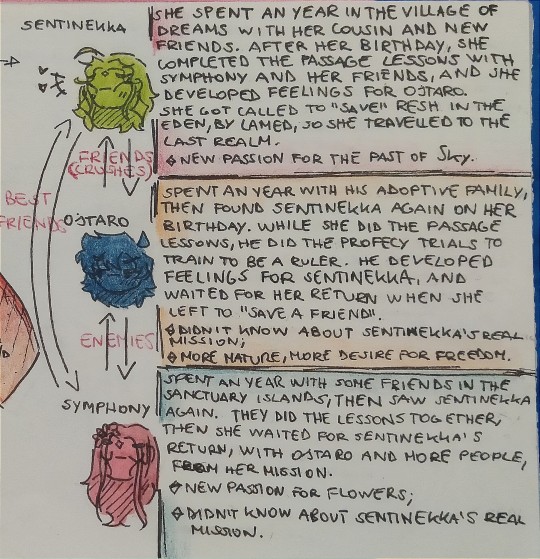 SENTINEKKA
SHE SPENT AN YEAR IN THE VILLAGE OF
DREAMS WITH HER COUSIN AND NEW
FRIENDS. AFTER HER BIRTHDAY, SHE
COMPLETED THE PASSAGE LESSONS WITH
SYMPHONY AND HER FRIENDS, AND SHE
DEVELOPED FEELINGS FOR OJTARO.
SHE GOT CALLED TO "SAVE" RESH IN THE
EDEN, BY LAMED, SO SHE TRAVELLED TO THE
LAST REALM.
NEW PASSION FOR THE PAST OF Sky.
FRIENDS
(CRUSHES)
BEST
FRIENDS
OJTARO
SPENT AN YEAR WITH HIS ADOPTIVE FAMILY,
THEN FOUND SENTINEKKA AGAIN ON HER
BIRTHDAY. WHILE SHE DID THE PASSAGE
LESSONS, HE DID THE PROFECY TRIALS TO
TRAIN TO BE A RULER. HE DEVELOPED
FEELINGS FOR SENTINEKKA, AND
WAITED FOR HER RETURN WHEN SHE
LEFT TO "SAVE A FRIEND".
DIDN'T KNOW ABOUT SENTINEKKA'S REAL
MISSION;
MORE NATURE, MORE DESIRE FOR FREEDOM.
ENEMIES
SYMPHONY
SPENT AN YEAR WITH SOME FRIENDS IN THE
SANCTUARY ISLANDS, THEN SAW SENTINEKKA
AGAIN. THEY DID THE LESSONS TOGETHER,
THEN SHE WAITED FOR SENTINEKKA'S
RETURN, WITH OJTARO AND MORE PEOPLE,
FROM HER MISSION.
NEW PASSION FOR FLOWERS;
DIDN'T KNOW ABOUT SENTINEKKA'S REAL
MISSION.